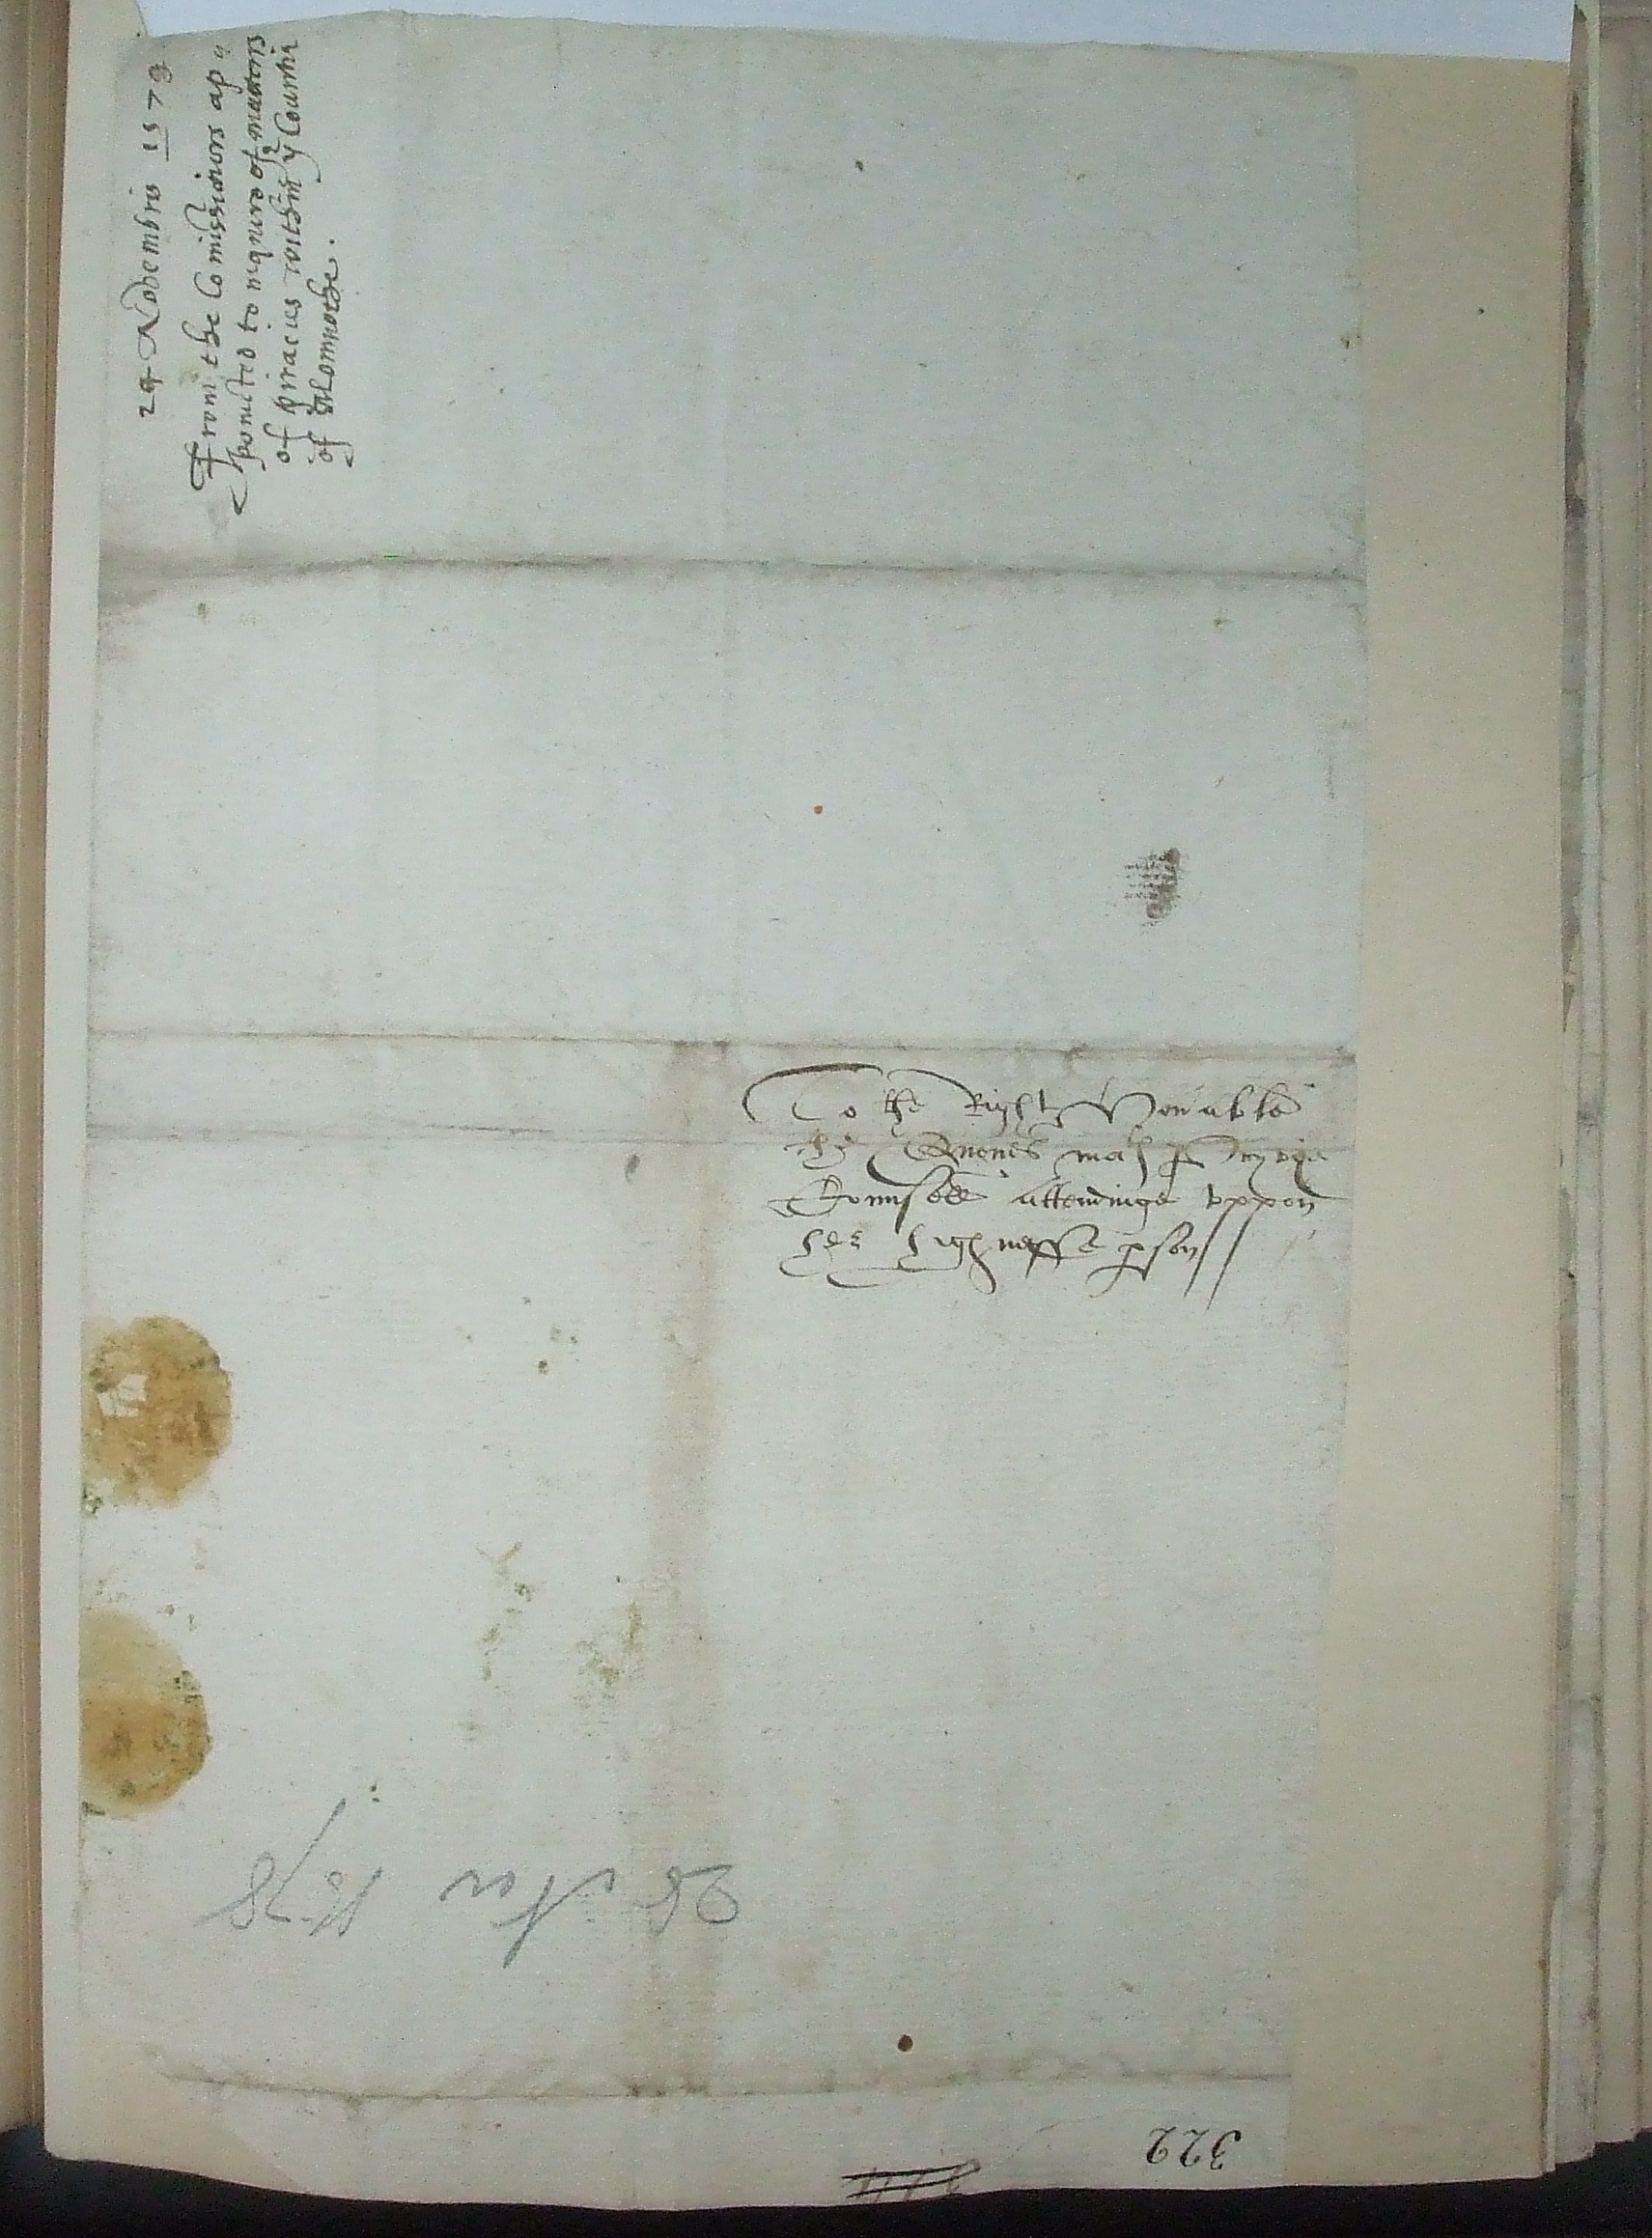 24 Novembris 1578
From the Comissioners ap„
pointed to inquire of matters
of piracies within yͤ Countie
of Monmothe.
To the Right Honable
the Quenes maᵗˢ pryvie
Counsell attendinge uppon
her highnesse pson//
24 Nov 1578
322